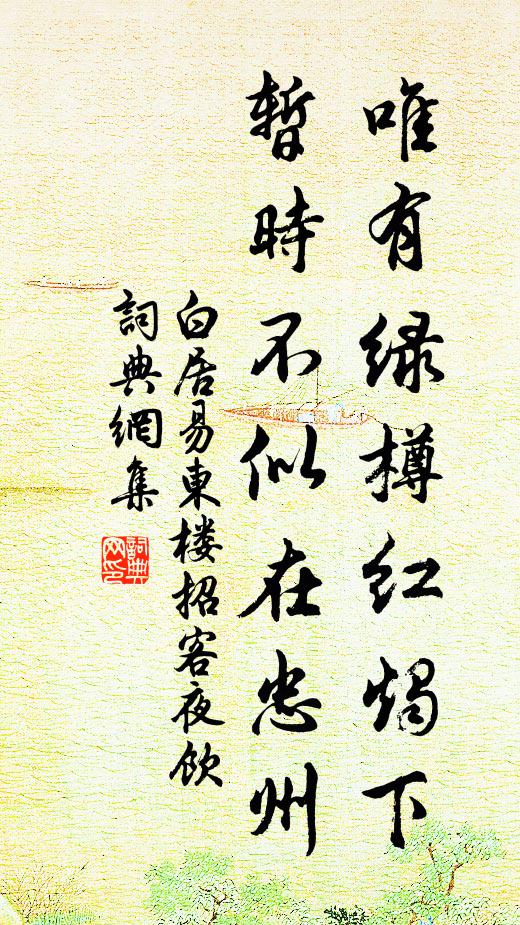 唯有绿樽红燭下
暫時不似在忠州
白居易東楼招客夜飲
詞典網集
詞典网印